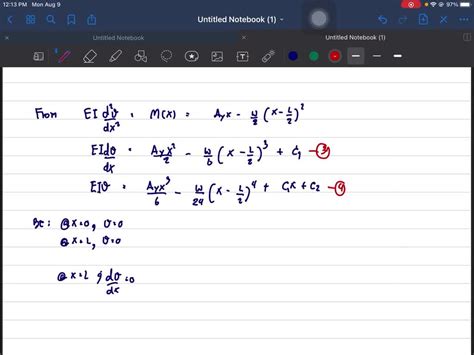 12:13 PM Mon Aug 9
97%
Untitled Notebook (1)
Untitled Notebook
Untitled Notebook (1)
From EI d²v/dx² = M(x) = Ayx - w/2 (x - L/2)²
EI dv/dx = Ayx²/2 - w/6 (x - L/2)³ + C₁ — ③
EIv = Ayx³/6 - w/24 (x - L/2)⁴ + C₁x + C₂ — ④
BC: @ x=0, v=0
@ x=L, v=0
@ x=L, dv/dx = 0